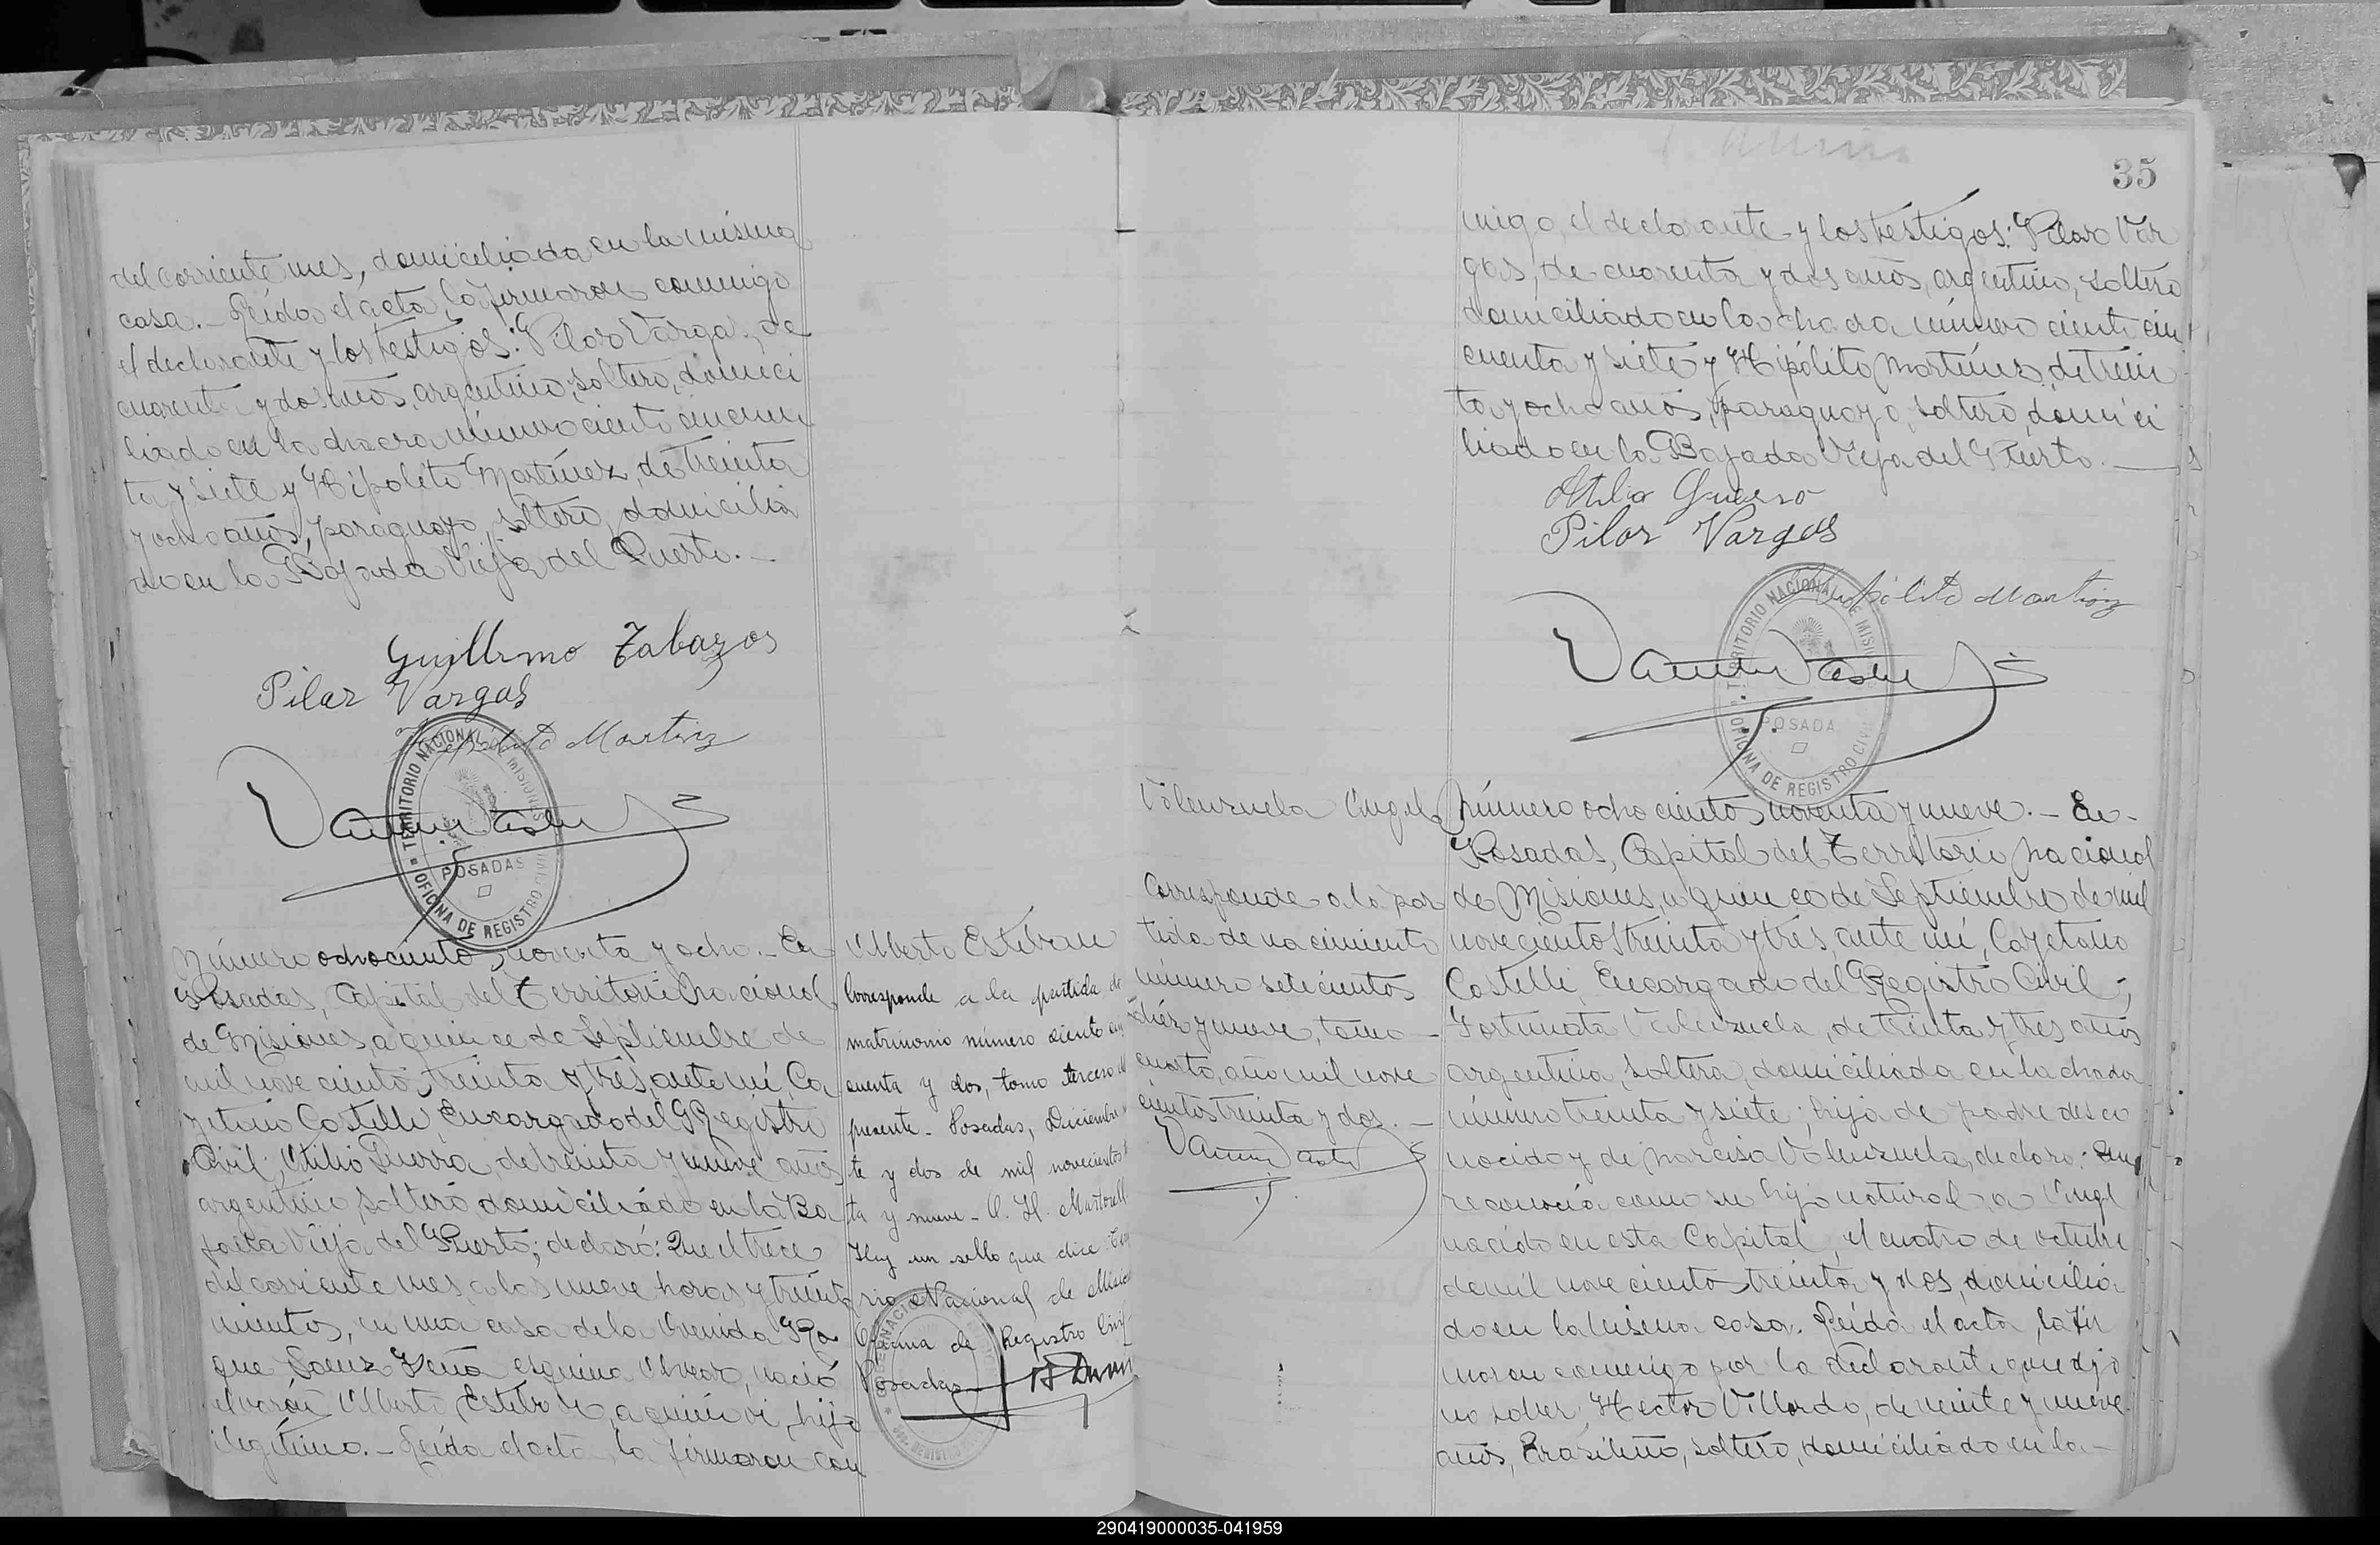 del corriente mes, domiciliada en la misma
casa.- Leída el acta, la firmaron conmigo
el declarante y los testigos: Pilar Vargas, de
cuarenta y dos años, argentino, soltero, domici
liado en la chacra número ciento cincuen
ta y siete y Hipólito Martínez, de treinta
y ocho años, paraguayo, soltero, domicilia
do en la Bajada Vieja del Puerto.-
Guillermo Tabazos
Pilar Vargas
Hipolito Martinez
TERRITORIO NACIONAL DE MISIONES
POSADAS
OFICINA DE REGISTRO CIVIL
Número ochocientos noventa y ocho.- En
Posadas, Capital del Territorio Nacional
de Misiones, a quince de Septiembre de
mil novecientos treinta y tres, ante mí, Ca
yetano Castelli, Encargado del Registro
Civil; Atilio Guerra, de treinta y nueve años
argentino, soltero, domiciliado en la Ba
jada Vieja del Puerto; declaró: Que el trece
del corriente mes, a las nueve horas y treinta
minutos, en una casa de la Avenida Ro
que Saenz Peña esquina Alvear, nació
el varón Alberto Esteban, a quien vi, hijo
ilegítimo.- Leída el acta, la firmaron con
Alberto Esteban
Corresponde a la partida de
matrimonio número ciento cin
cuenta y dos, tomo tercero del
presente - Posadas, Diciembre
te y dos de mil novecientos
ta y nueve - C. H. Martorell
Hay un sello que dice: Ter
rio Nacional de Misio
Oficina de Registro Civil
Posadas
35
migo, el declarante y los testigos: Pilar Var
gas, de cuarenta y dos años, argentino, soltero
domiciliado en la chacra número ciento cin
cuenta y siete y Hipólito Martínez, de trein
ta y ocho años, paraguayo, soltero, domici
liado en la Bajada Vieja del Puerto.-
Atilio Guerro
Pilar Vargas
Hipolito Martinez
TERRITORIO NACIONAL DE MISIONES
POSADAS
OFICINA DE REGISTRO CIVIL
Valenzuela Angel
Corresponde a la par
tida de nacimiento
número setecientos
diez y nueve, tomo -
cuarto, año mil nove
cientos treinta y dos.-
Número ochocientos noventa y nueve.- En-
Posadas, Capital del Territorio Nacional
de Misiones, a quince de Septiembre de mil
novecientos treinta y tres, ante mí, Cayetano
Castelli, Encargado del Registro Civil;
Fortunata Valenzuela, de treinta y tres años
argentina, soltera, domiciliada en la chacra
número treinta y siete; hija de padre desco
nocido y de Narcisa Valenzuela, declaro: Que
reconocía como su hijo natural a Angel
nacido en esta Capital, el cuatro de octubre
de mil novecientos treinta y dos, domicilia
do en la misma casa. Leída el acta, la fir
maron conmigo por la declarante que dijo
no saber, Hector Villordo, de veinte y nueve
años, Brasileño, soltero, domiciliado en la-
290419000035-041959